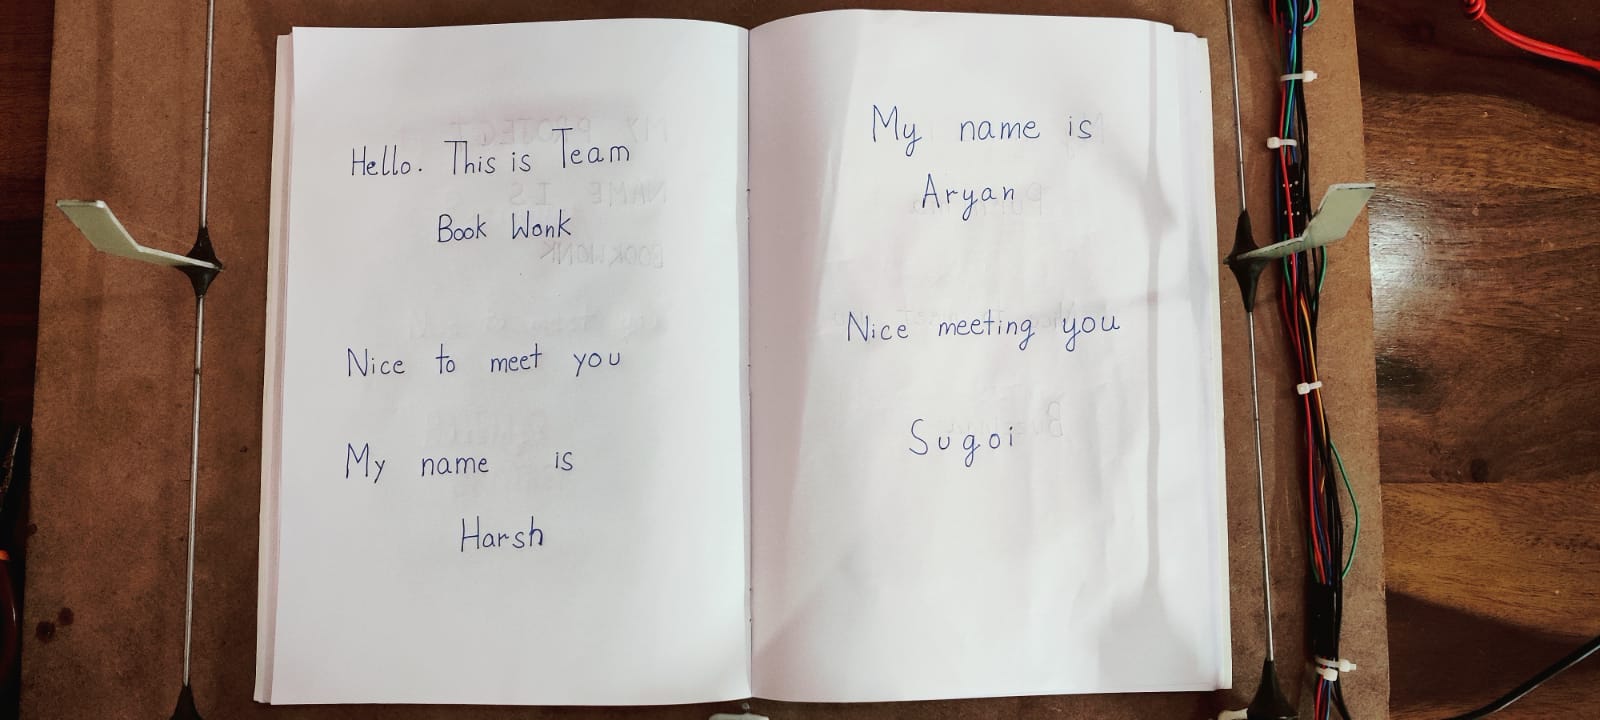 Hello. This is Team
Book Wonk
Nice to meet you
My name is
Harsh
My name is
Aryan
Nice meeting you
Sugoi